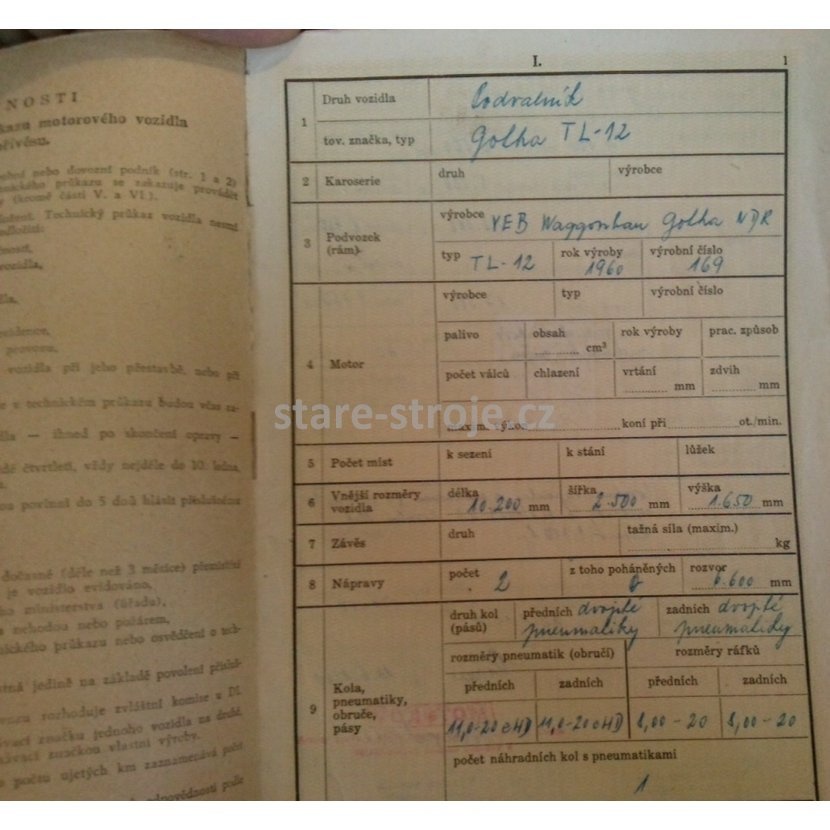 NOSTI
kazu motorového vozidla
obní nebo dovozní podnik (str. 1 a 2)
nického průkazu se zakazuje provádět
y (kromě části V. a VI.).
Technický průkaz vozidla nesmí
vozidla,
evidence,
provozu,
vozidla při jeho přestavbě, nebo při
e v technickém průkazu budou včas
dla — ihned po skončení opravy —
dé čtvrtletí, vždy nejdéle do 10. ledna,
ou povinni do 5 dnů hlásit příslušnému
dočasné (déle než 3 měsíce) přemístění
je vozidlo evidováno,
ho ministerstva (úřadu),
nehodou nebo požárem,
nického průkazu nebo osvědčení o
tná jedině na základě povolení
rozhoduje zvláštní komise u DI.
vací značku jednoho vozidla na druhé,
návací značkou vlastní výroby.
počtu ujetých km zaznamenává
odpovědnosti podle
I.
1
1 Druh vozidla Podvalník
tov. značka, typ Gotha TL-12
2 Karoserie druh výrobce
3 Podvozek (rám) výrobce VEB Waggonbau Gotha NDR
typ TL-12 rok výroby 1960 výrobní číslo 169
4 Motor výrobce typ výrobní číslo
palivo obsah cm³ rok výroby prac. způsob
počet válců chlazení vrtání mm zdvih mm
maxim. výkon koní při ot./min.
stare-stroje.cz
5 Počet míst k sezení k stání lůžek
6 Vnější rozměry vozidla délka 10.200 mm šířka 2.500 mm výška 1.650 mm
7 Závěs druh tažná síla (maxim.) kg
8 Nápravy počet 2 z toho poháněných 0 rozvor 6.600 mm
9 Kola, pneumatiky, obruče, pásy
druh kol (pásů) předních dvojité pneumatiky zadních dvojité pneumatiky
rozměry pneumatik (obručí) rozměry ráfků
předních zadních předních zadních
11,0-20 eHD 11,0-20 eHD 8,00-20 8,00-20
počet náhradních kol s pneumatikami
1